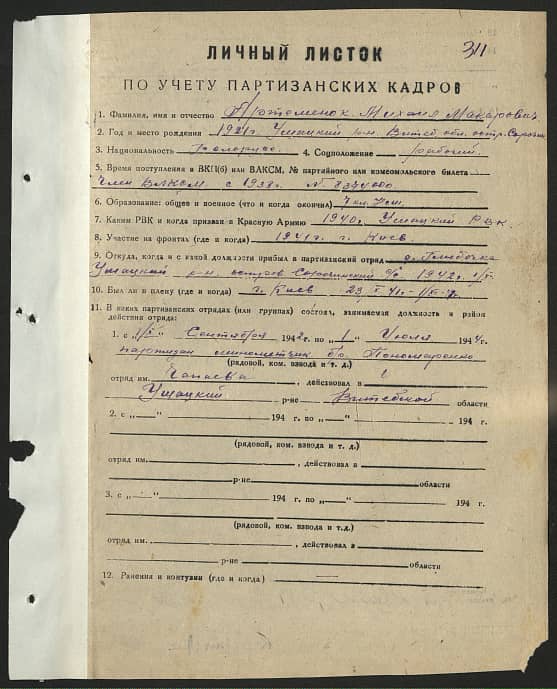 311
ЛИЧНЫЙ ЛИСТОК
ПО УЧЕТУ ПАРТИЗАНСКИХ КАДРОВ
1. Фамилия, имя и отчество Артеменок Михаил Макарович
2. Год и место рождения 1921 г. Ушацкий р-н. Витеб. обл. остр.
3. Национальность Белорус 4. Соцположение рабочий
5. Время поступления в ВКП(б) или ВЛКСМ, № партийного или комсомольского билета
Член ВЛКСМ с 1938 г. N.
6. Образование: общее и военное (что и когда окончил) 7 кл.
7. Каким РВК и когда призван в Красную Армию 1940 г. Ушацкий РВК
8. Участие на фронтах (где и когда) 1941 г. г. Киев
9. Откуда, когда и с какой должности прибыл в партизанский отряд д.
Ушацкий р-н 1942 г.
10. Был ли в плену (где и когда) г. Киев
11. В каких партизанских отрядах (или группах) состоял, занимаемая должность и район
действия отряда:
1. с „1“ Сентября 1942 г. по „1“ Июля 1944 г.
партизан минометчик бр. Пономаренко
(рядовой, ком. взвода и т. д.)
отряд им. Чапаева, действовал в
Ушацкий р-не Витебской области
2. с „ “ 194 г. по „ “ 194 г.
(рядовой, ком. взвода и т. д.)
отряд им. , действовал в
р-не области
3. с „ “ 194 г. по „ “ 194 г.
(рядовой, ком. взвода и т.д.)
отряд им. , действовал в
р-не области
12. Ранения и контузии (где и когда) —